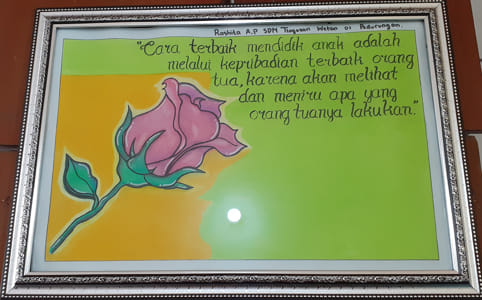 Roshita A.P SDN Tlogosari Wetan 01 Pedurungan.
"Cara terbaik mendidik anak adalah
melalui kepribadian terbaik orang
tua, karena akan melihat
dan meniru apa yang
orang tuanya lakukan."